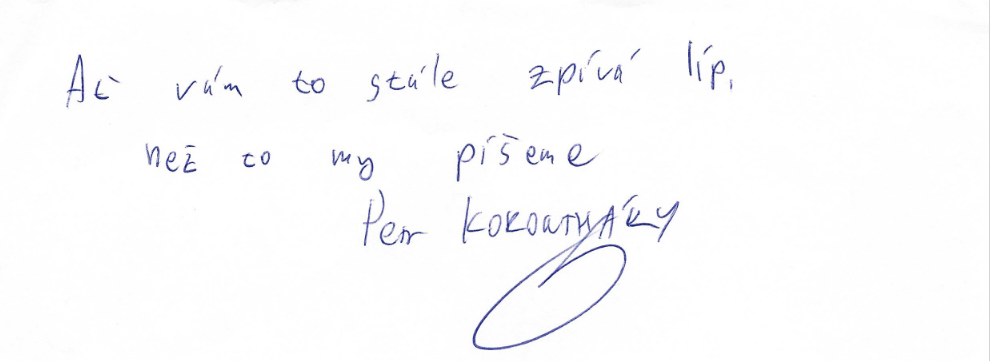 Ať vám to stále zpívá líp,
než co my píšeme
Petr